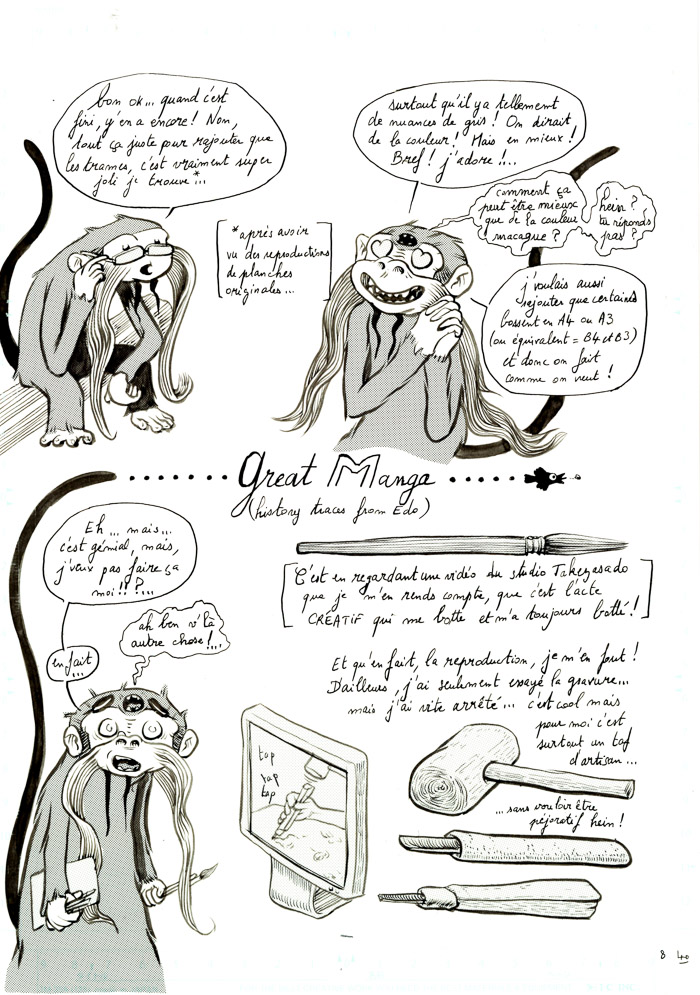 bon ok... quand c'est
fini, y'en a encore! Non,
tout ça juste pour rajouter que
les trames, c'est vraiment super
joli je trouve*...
surtout qu'il y a tellement
de nuances de gris! On dirait
de la couleur! Mais en mieux!
Bref! j'adore!!..
comment ça
peut être mieux
que de la couleur
macaque?
hein?
tu réponds
pas?
*après avoir
vu des reproductions
de planches
originales...
j'voulais aussi
rejouter que certains
bossent en A4 ou A3
(ou équivalent = B4 et B3)
et donc on fait
comme on veut!
...... Great Manga .....
(history traces from Edo)
Eh... mais...
c'est génial, mais,
j'veux pas faire ça
moi!!?...
ah ben v'là
autre chose!...
en fait
...
C'est en regardant une vidéo du studio Takezasado
que je m'en rends compte, que c'est l'acte
CRÉATIF qui me botte et m'a toujours botté!
Et qu'en fait, la reproduction, je m'en fout!
D'ailleurs, j'ai seulement essayé la gravure...
mais j'ai vite arrêté... c'est cool mais
pour moi c'est
surtout un taf
d'artisan...
tap
tap
tap
...sans vouloir être
péjoratif hein!
8 40